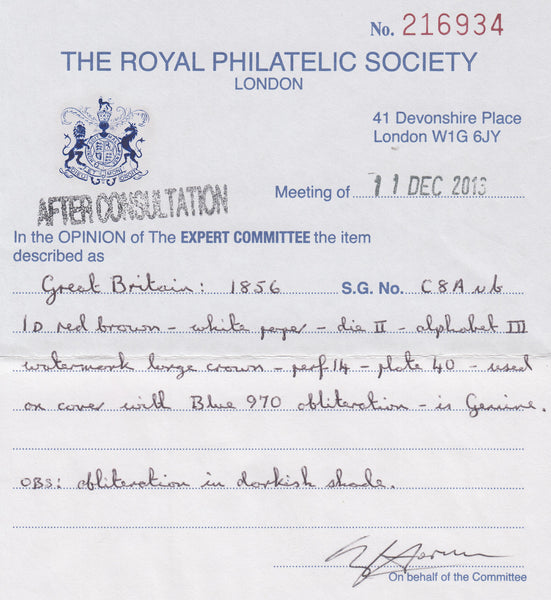 No. 216934
THE ROYAL PHILATELIC SOCIETY
LONDON
41 Devonshire Place
London W1G 6JY
AFTER CONSULTATION
Meeting of 11 DEC 2013
In the OPINION of The EXPERT COMMITTEE the item
described as
Great Britain: 1856 S.G. No. C8A ub
1D red brown - white paper - die II - alphabet III
watermark large crown - perf.14 - plate 40 - used
on cover with Blue 970 obliteration - is Genuine.
OBS: obliteration in darkish shade.
On behalf of the Committee